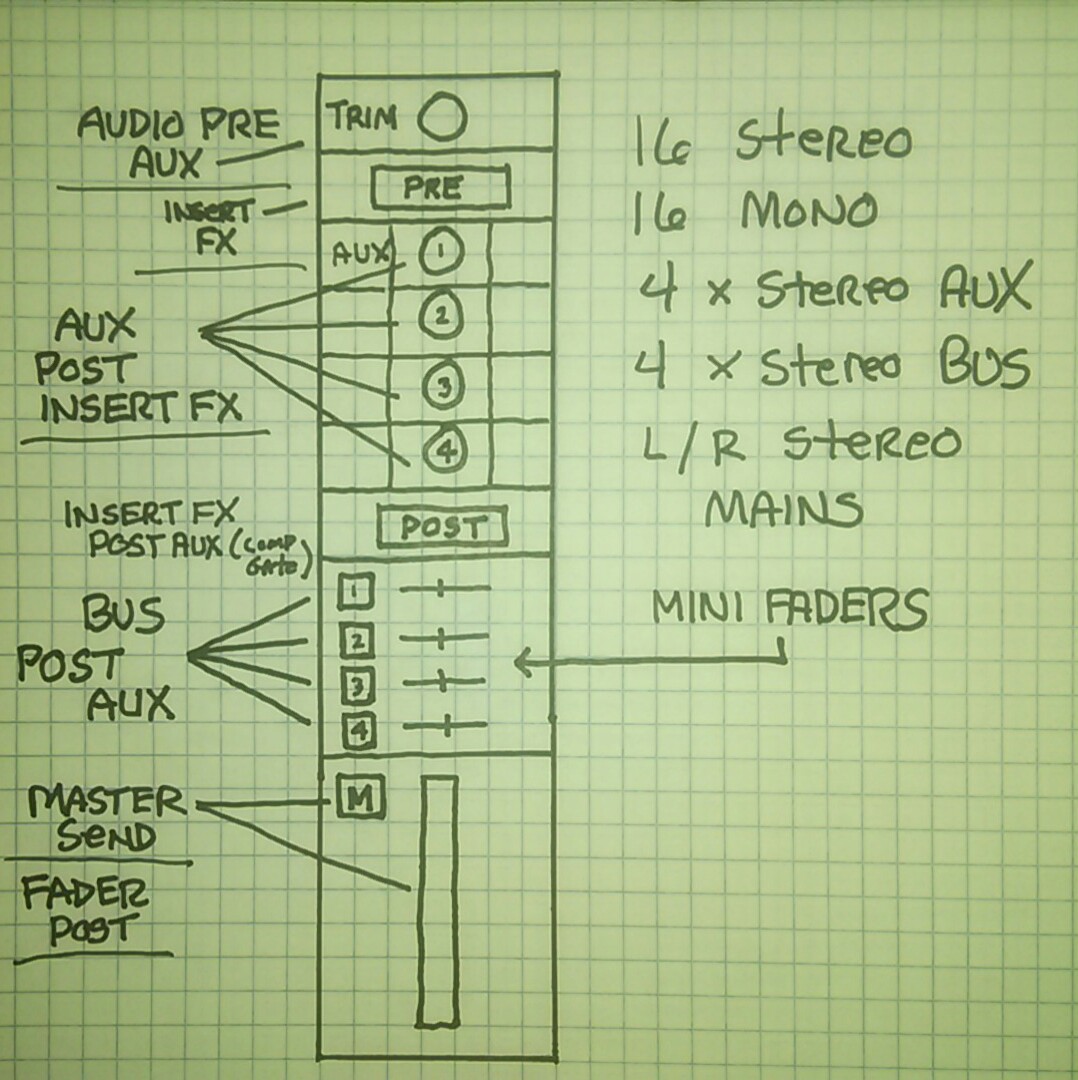 AUDIO PRE
AUX
INSERT
FX
AUX
POST
INSERT FX
INSERT FX
POST AUX (COMP
GATE)
BUS
POST
AUX
MASTER
SEND
FADER
POST
TRIM
PRE
AUX 1
2
3
4
POST
1
2
3
4
M
16 Stereo
16 MONO
4 x Stereo AUX
4 x Stereo BUS
L/R Stereo
MAINS
MINI FADERS